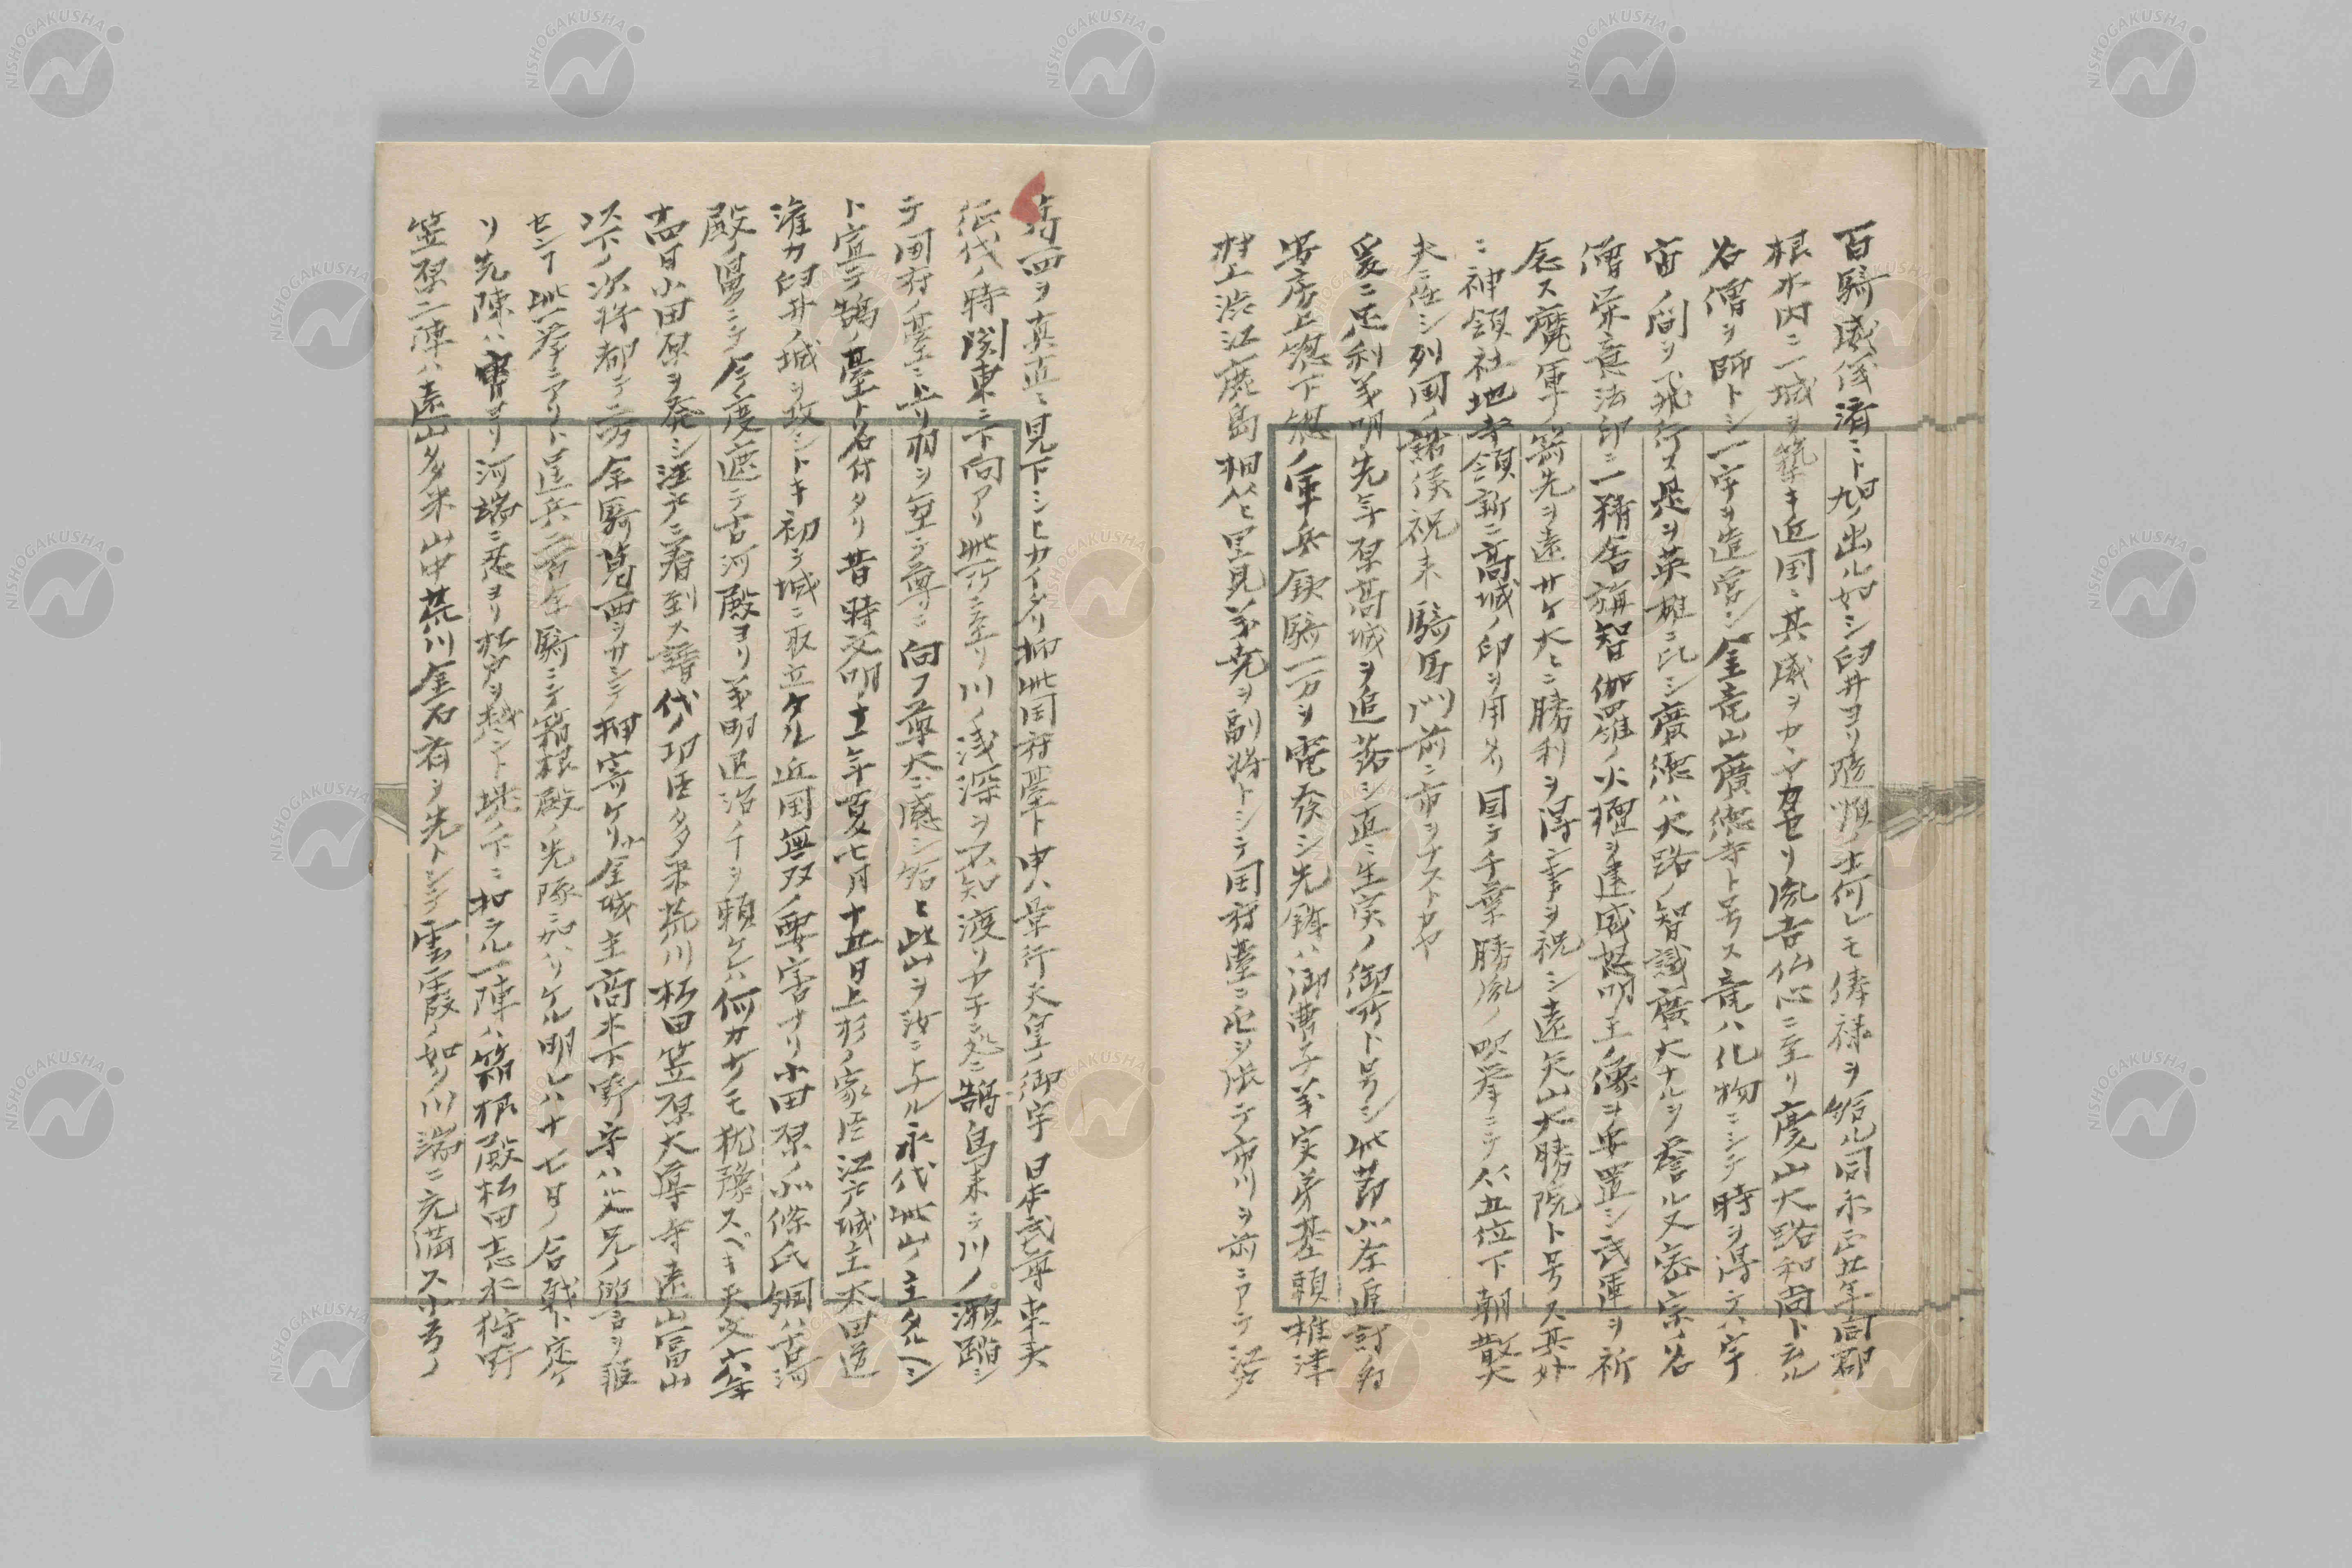 百騎威儀済ニト旭ノ出ル如シ臼井ヨリ随順ノ士何レモ俸禄ヲ給ル同永正五年同郡
根木内ニ一城ヲ築キ近国ニ其威ヲカヽヤカセリ胤吉仏心ニ至リ慶山大路和尚ト云ル
名僧ヲ師トシ一宇ヲ造営シ金竜山廣徳寺ト号ス竜ハ化物ニシテ時ヲ得テハ宇
宙ノ間ヲ飛行ス是ヲ英雄ニ比シ廣徳ハ大路ノ智識廣大ナルヲ誉ル又密宗ノ名
僧栄意法印ニ一精舎 智 伽羅ノ火煙ヲ 威怒明王ノ像ヲ安置シ武運ヲ祈
念ス魔軍ノ箭先ヲ遠サケ大ヒニ勝利ヲ得ン事ヲ祝シ遠矢山大勝院ト号ス其外
ニ神領社地寺領新ニ高城ノ印ヲ用ヒ 国テ千葉勝胤ノ吹挙ニテ従五位下朝散
大夫ニ任シ列国ノ諸侯祝来騎馬門前ニ市ヲナストカヤ
爰ニ足利義明ハ先年原高城ヲ追落シ直ニ生実ノ御所ト号シ此節小 追討
安房上総下総ノ軍兵鉄騎一万ヲ電発シ先鋒ハ御曹子義実弟基頼椎津
村上渋江鹿島相 ヒ里見義尭ヲ副将トシテ国府臺ニ屯ヲ張テ市川ヲ前ニアテ江
府ノ西ヲ真直ニ見下シヒカイタリ抑此国府臺ト申ハ景行天皇ノ御宇日本武尊東夷
征伐ノ時関東ニ下向アリ此所ニ至リ川ノ浅深ヲ不知渡リヤラニ 鵠鳥来テ川ノ瀬踏シ
テ国府ノ臺ニ上リ羽ヲ垂テ尊ニ向フ尊大ニ感シ給ヒ此山ヲ汝ニ与ル永代此山ノ主タルヘシ
ト宣テ鵠ノ臺ト名付タリ昔時文明十一年夏七月十五日上杉ノ家臣江戸城主太田道
灌カ臼井ノ城ヲ攻シトキ初テ城ニ取立ケル近国無双ノ要害ナリ小田原ノ北條氏綱ハ古河
殿ノ舅ニテ今度遮テ古河殿ヨリ義明退治ノヿヲ頼ケレハ何カサモ猶豫スベキ天文六年
 四日小田原ヲ発シ江戸ニ着到ス譜代ノ功臣多米荒川松田笠原大導寺遠山富山
以下ノ次将都テ二万余騎葛西ヲサシテ押寄ケリ小金城主高木下野守ハ父兄ノ遺言ヲ報
センヿ此一挙ニアリト逞兵二百余騎ニテ箱根殿ノ先隊ニ加ハリケル明レハ十七日ノ合戦ト定ケ
リ先陣ハ曹ヨリ河端ニ 松戸ヲ越ント 下ニ扣ヘタル一陣ハ箱根殿松田志水狩野
笠原二陣ハ遠山多米山中荒川金石有ヲ先トシテ雲霞ノ如ク川端ニ充満ス小弓ノ